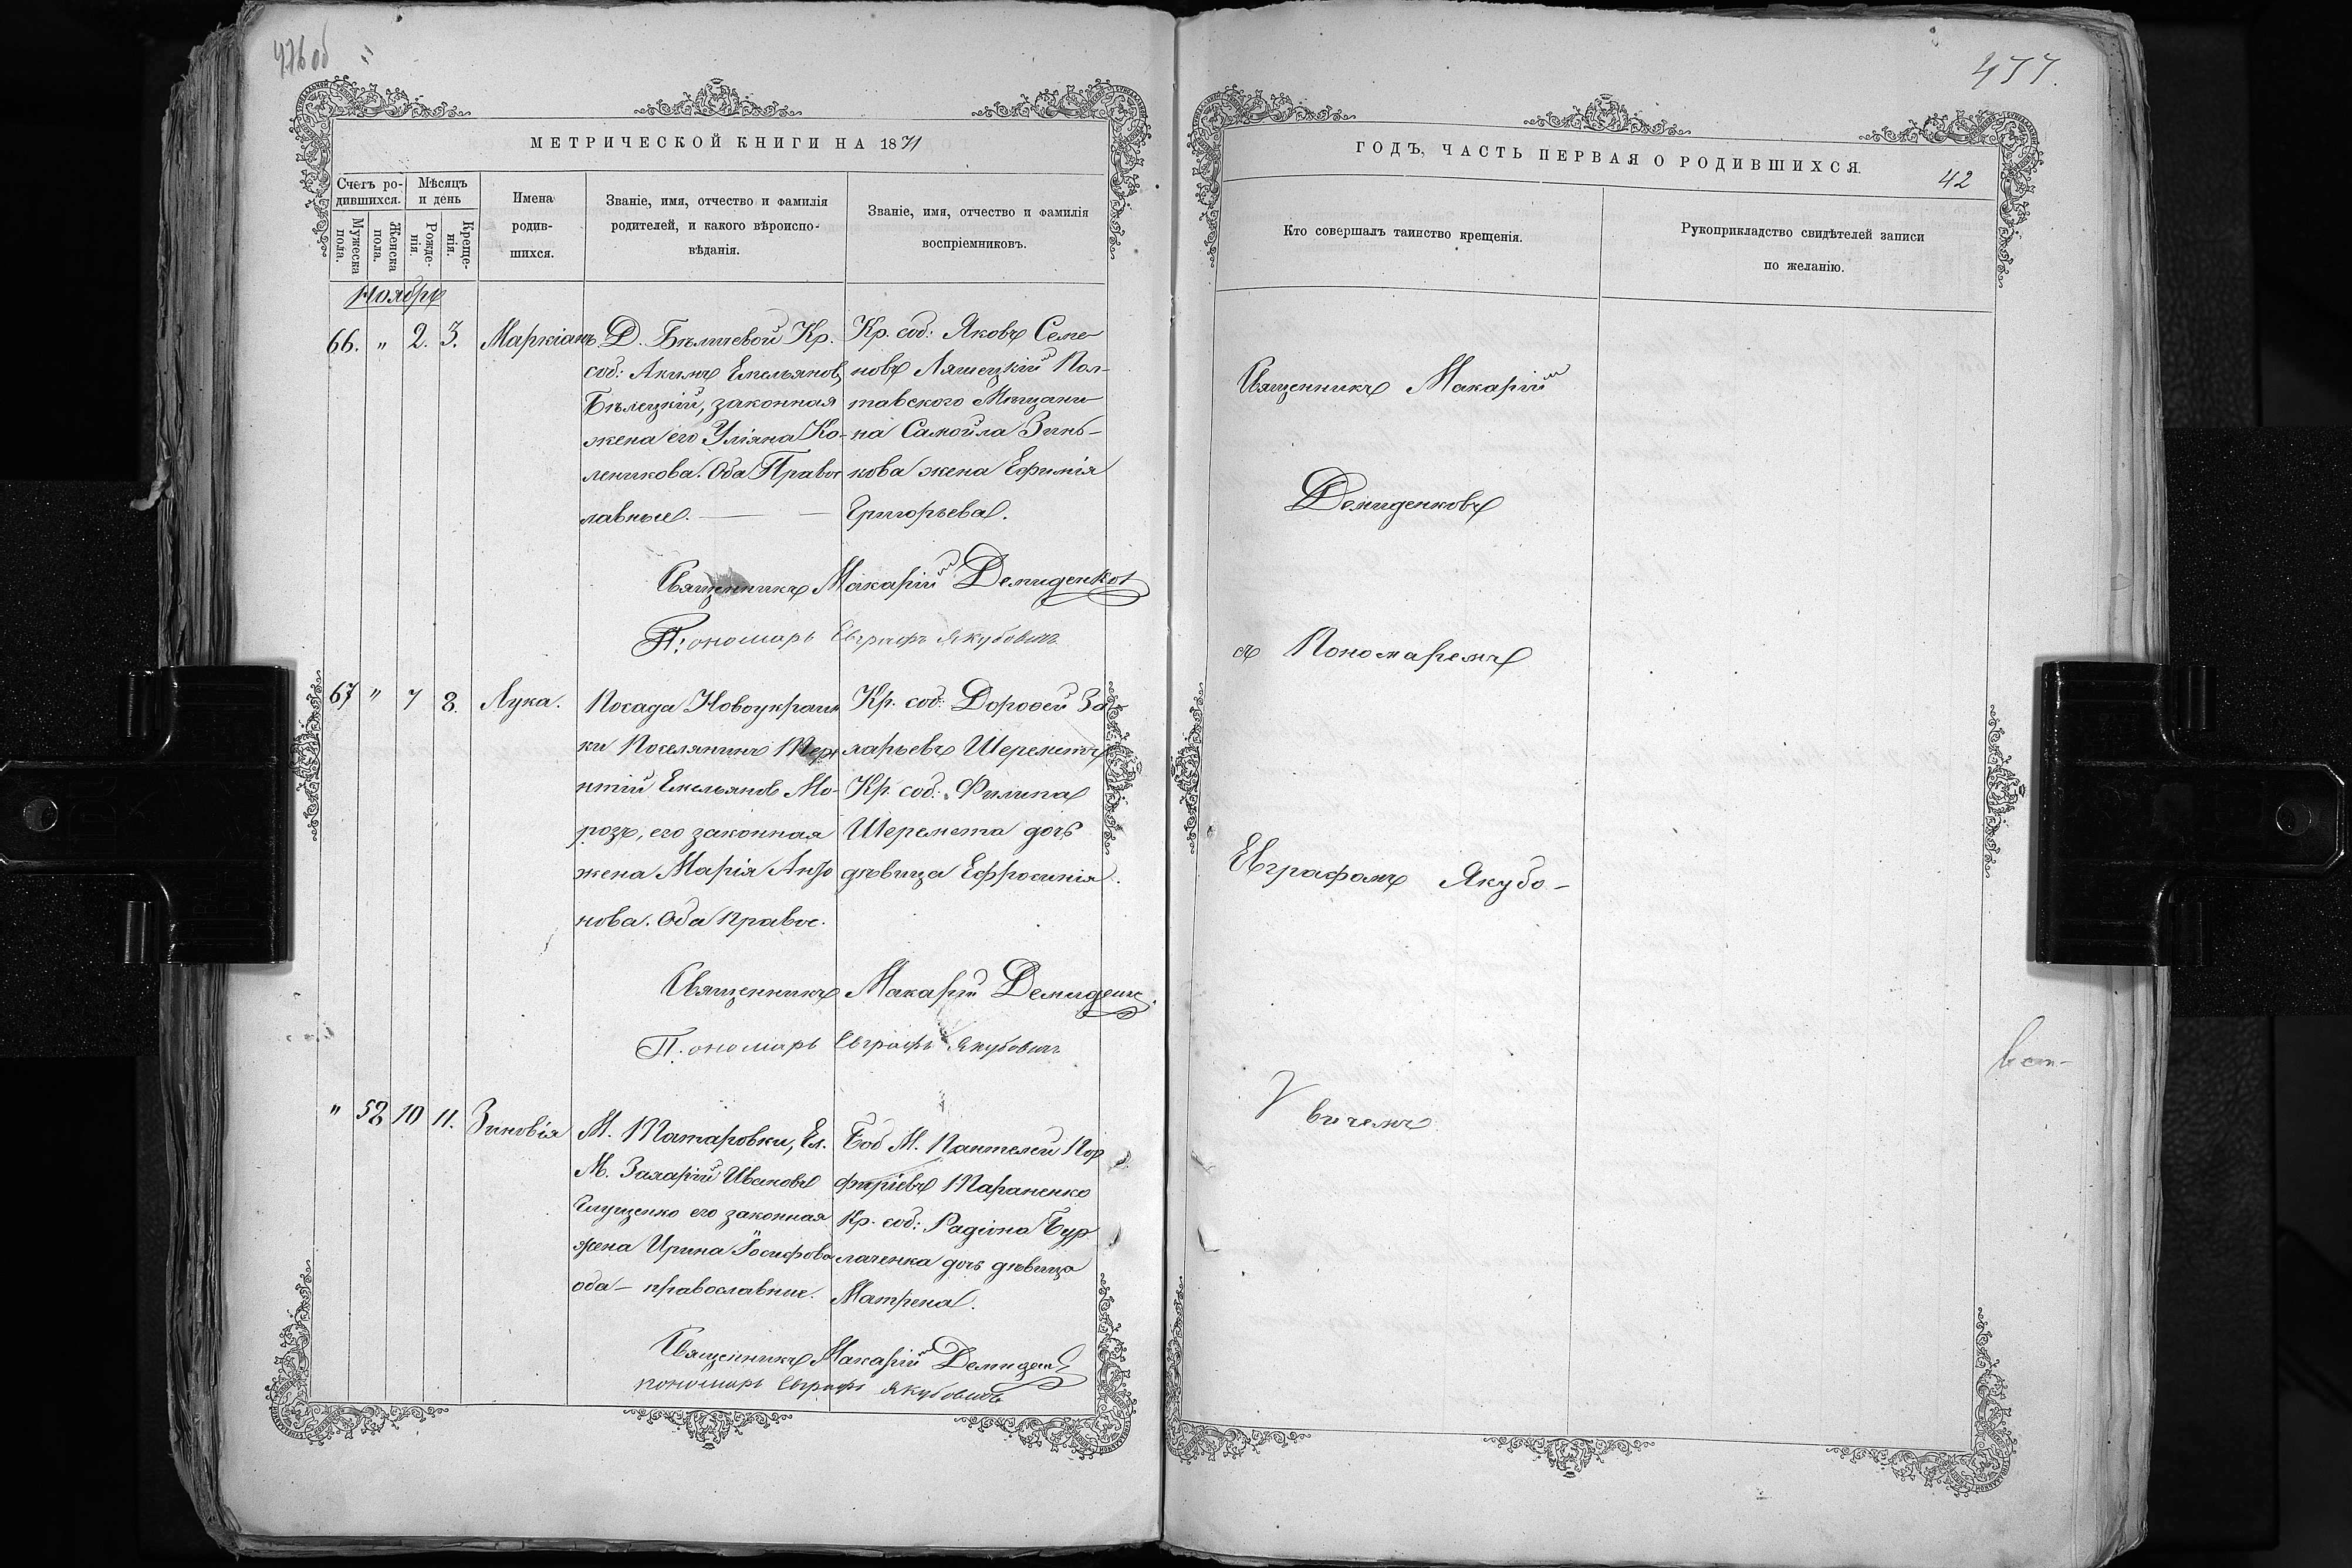 476 об
МЕТРИЧЕСКОЙ КНИГИ НА 1871
Счетъ ро-
дившихся.
Мѣсяцъ
и день
Мужеска
пола.
Женска
пола.
Рожде-
нія.
Креще-
нія.
Имена
родив-
шихся.
Званіе, имя, отчество и фамилія
родителей, и какого вѣроиспо-
вѣданія.
Званіе, имя, отчество и фамилія
воспріемниковъ.
Ноябрь
66. " 2. 3. Маркіанъ
Д. Бѣличевой Кр.
соб: Акимъ Емельяновъ
Бѣлецкій, законная
жена его Уліяна Ко-
леникова. Оба Правос
лавные.
Кр. соб: Яковъ Семе
новъ Ляшецкій Пол-
тавского Мѣщани
на Самойла Зинь-
кова жена Ефимія
Григорьева.
Священникъ Макарій Демиденков
Пономарь Евграфъ Якубовичъ
67 " 7 8. Лука.
Посада Новоукраин
ки Поселянинъ Тере
нтій Емельянов Мо-
розъ, его законная
жена Марія Анто
нова. Оба правос.
Кр. соб: Дорофей За-
харьевъ Шереметъ
Кр. соб: Филипа
Шеремета дочь
дѣвица Ефросинія.
Священникъ Макарій Демиденк
Пономарь Евграфъ Якубовичъ
" 58 10 11. Зиновія
М. Татаровки, Ел.
М. Захарій Ивановъ
Глущенко его законная
жена Ирина Іосифова
оба - православные.
Боб М. Пантелей Пор
фиріевъ Тараненко
Кр. соб: Радіона Бур
лаченка дочь дѣвица
Матрена.
Священникъ Макарій Демиденк
пономарь Евграфъ Якубовичъ
477.
ГОДЪ, ЧАСТЬ ПЕРВАЯ О РОДИВШИХСЯ.
42
Кто совершалъ таинство крещенія.
Рукоприкладство свидѣтелей записи
по желанію.
Священникъ Макарій
Демиденковъ
съ Пономаремъ
Евграфомъ Якубо-
вичемъ